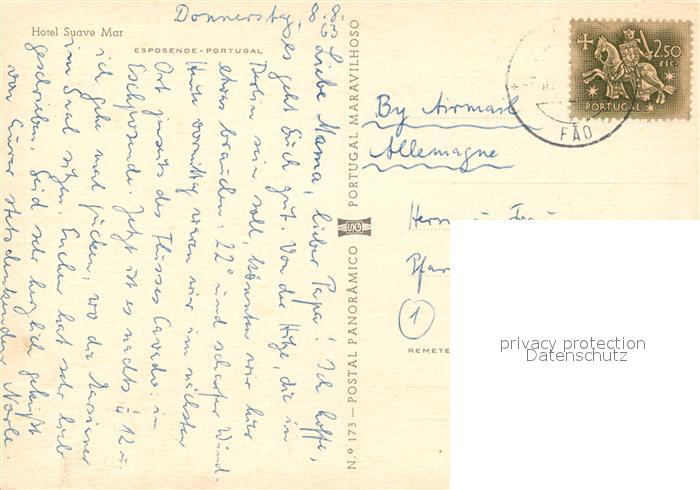 Hotel Suave Mar
ESPOSENDE - PORTUGAL
Donnerstag, 8.8.63
Liebe Mama, lieber Papa! Ich hoffe,
es geht Euch gut. Von der Hitze, die in
Berlin sein soll, könnten wir hier
etwas brauchen: 22° und scharfer Wind.
Heute vormittag waren wir im nächsten
Ort jenseits des Flusses Cavado: in
Esposende. Jetzt ist es nachts ½ 12 u.
ich geh mal gucken, wo die
im Saal sitzen. Euch hat sehr lieb
geschrieben. Seid sehr herzlich geküsst
von Eurer stets denkenden
N.º 173 — POSTAL PANORÂMICO
PORTUGAL MARAVILHOSO
2$50
ESC.
PORTUGAL
FÃO
By Airmail
Allemagne
Herrn u. Frau
Pfar
1
REMETE
privacy protection
Datenschutz